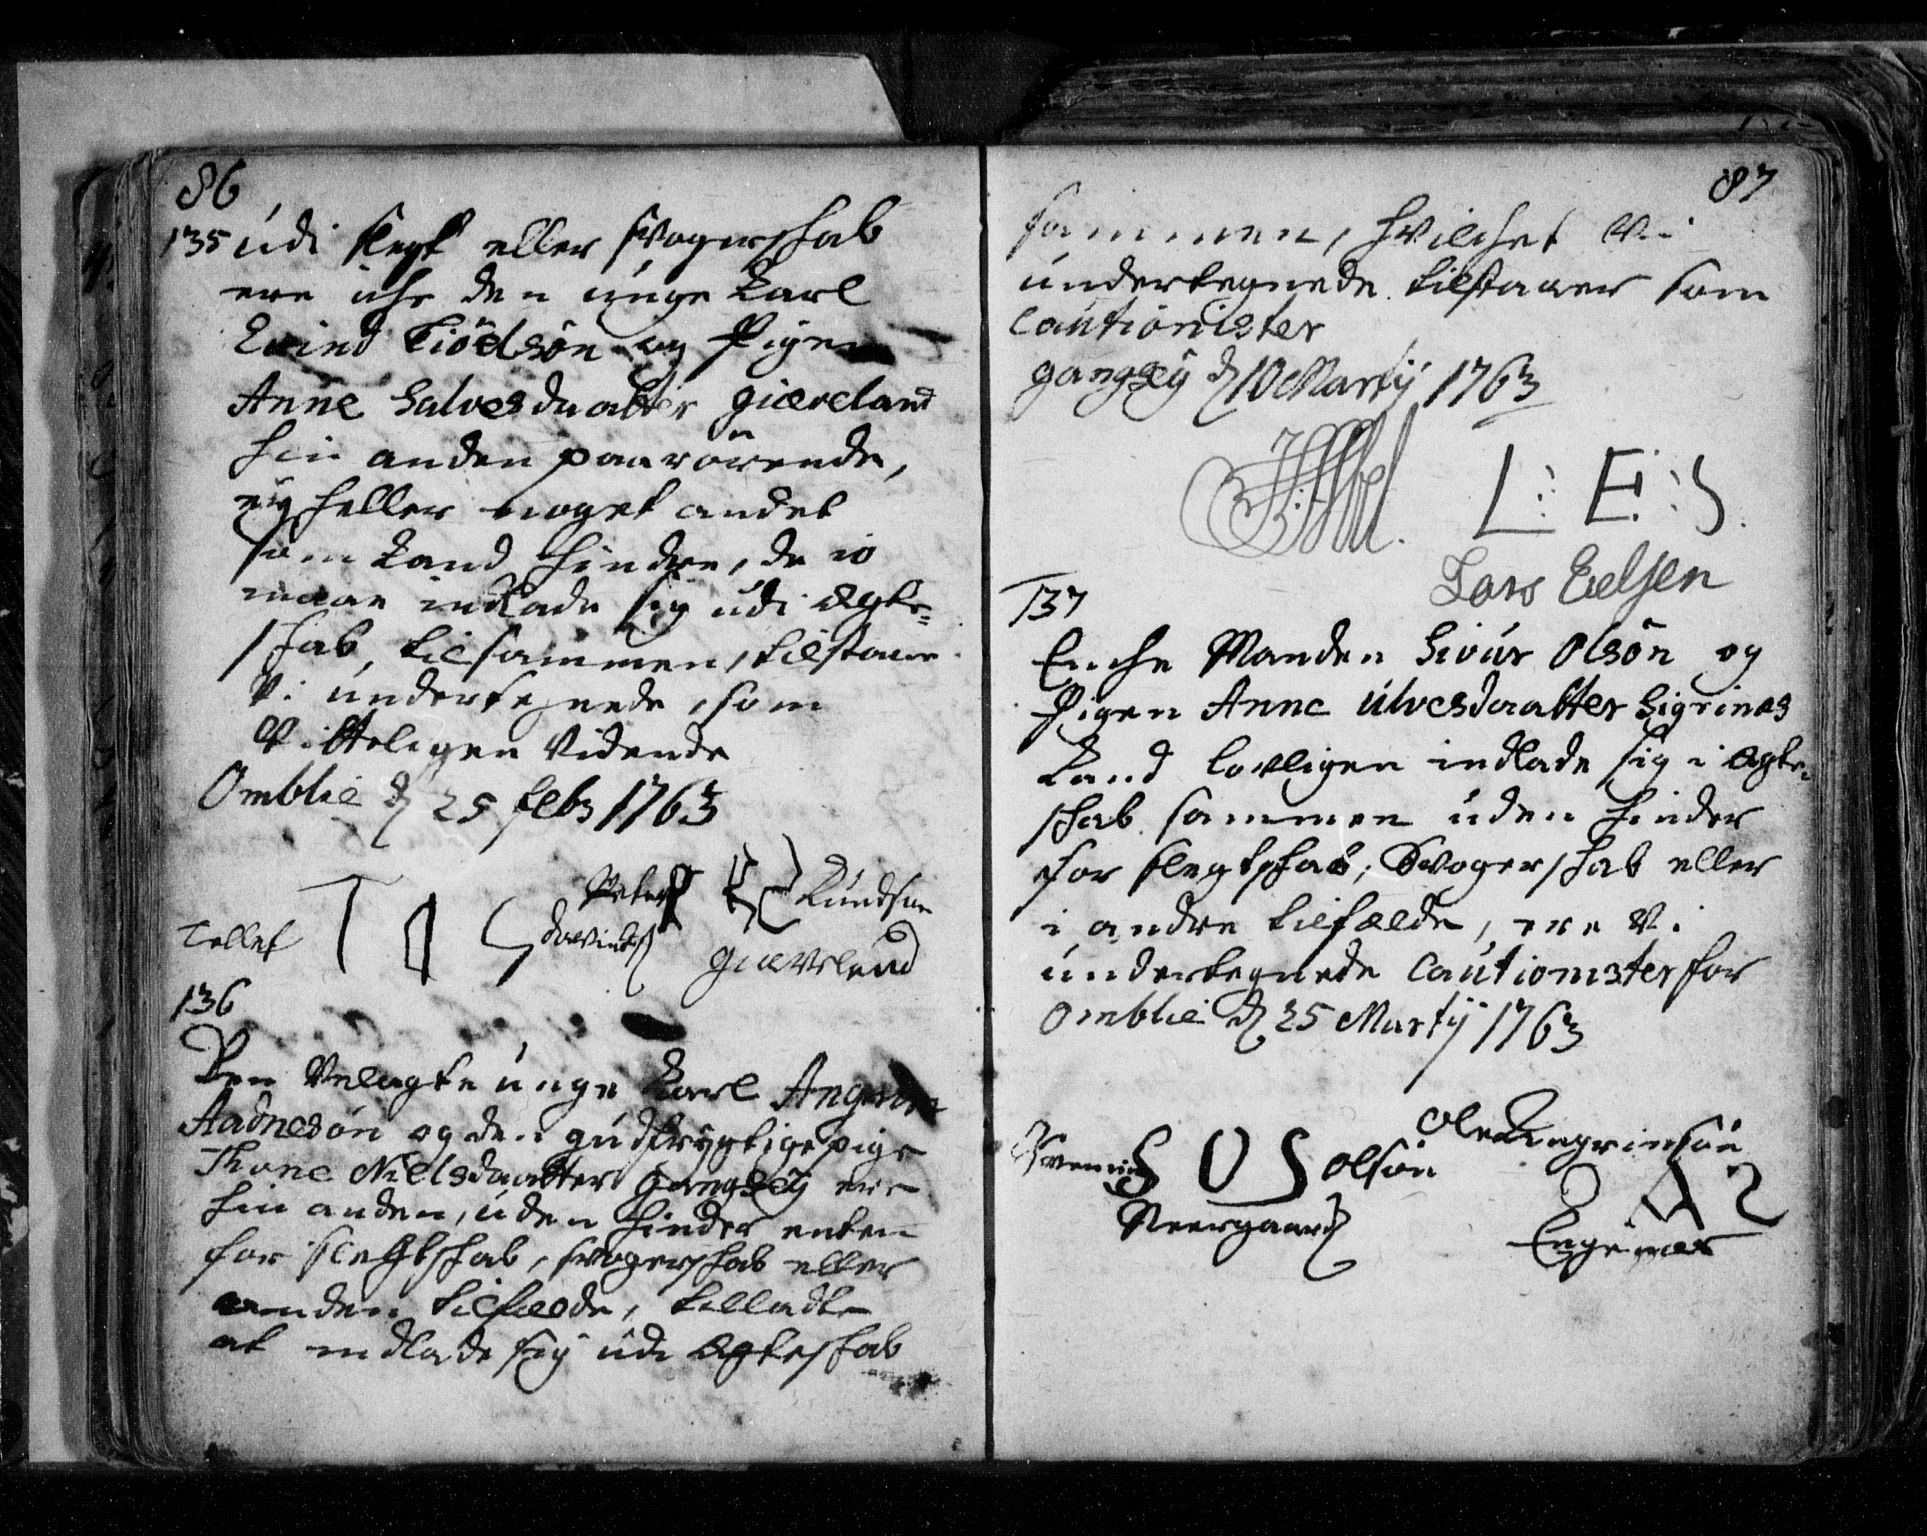 86
135 udi slegt eller svogerskab
ere iche den unge Karl
Evind Tiöelsön og Pigen
Anne Salvesdaatter Giæveland
hin anden paarörende,
ey heller noget andet
som kand hindre, de io
maae indlade sig udi Ægte=
skab, tilsammen, tilstaaer
Vi undertegnede, som
Vitteligen Vidende
Omblie d 25 febr 1763
Tellef T O S Peter Knudsøn
Giævelund
136
Den Velagte unge Karl
Aadnesön og den gudfrygtige pige
Thone Nielsdaatter Gangsey ere
hin anden, uden hinder enten
for slegtskab, svogerskab eller
anden tilfælde, tilladte
at indlade sig udi Ægteskab
87
sammen, hvilchet Vi
undertegnede tilstaaer som
Cautionister
Gangsey d 10 Martij 1763
L: E: S.
Lars Eelsen
137
Enche Manden Sivur Olsön og
Pigen Anne Ulvesdaatter Sigrines
kand lovligen indlade sig i Ægte=
skab sammen uden hinder
for slegtskab, Svogerskab eller
i andre tilfælde, ere Vi
undertegnede Cautionister for
Omblie d 25 Martij 1763
S O S Olsön
Neergaard
Ole